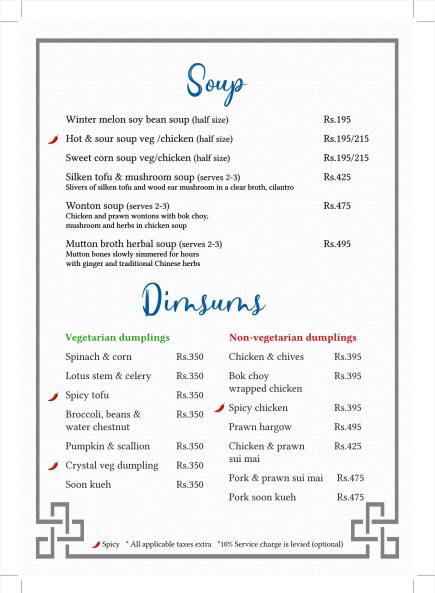 Soup
Winter melon soy bean soup (half size) Rs.195
Hot & sour soup veg /chicken (half size) Rs.195/215
Sweet corn soup veg/chicken (half size) Rs.195/215
Silken tofu & mushroom soup (serves 2-3) Rs.425
Slivers of silken tofu and wood ear mushroom in a clear broth, cilantro
Wonton soup (serves 2-3) Rs.475
Chicken and prawn wontons with bok choy,
mushroom and herbs in chicken soup
Mutton broth herbal soup (serves 2-3) Rs.495
Mutton bones slowly simmered for hours
with ginger and traditional Chinese herbs
Dimsums
Vegetarian dumplings
Spinach & corn Rs.350
Lotus stem & celery Rs.350
Spicy tofu Rs.350
Broccoli, beans & Rs.350
water chestnut
Pumpkin & scallion Rs.350
Crystal veg dumpling Rs.350
Soon kueh Rs.350
Non-vegetarian dumplings
Chicken & chives Rs.395
Bok choy Rs.395
wrapped chicken
Spicy chicken Rs.395
Prawn hargow Rs.495
Chicken & prawn Rs.425
sui mai
Pork & prawn sui mai Rs.475
Pork soon kueh Rs.475
Spicy * All applicable taxes extra *10% Service charge is levied (optional)